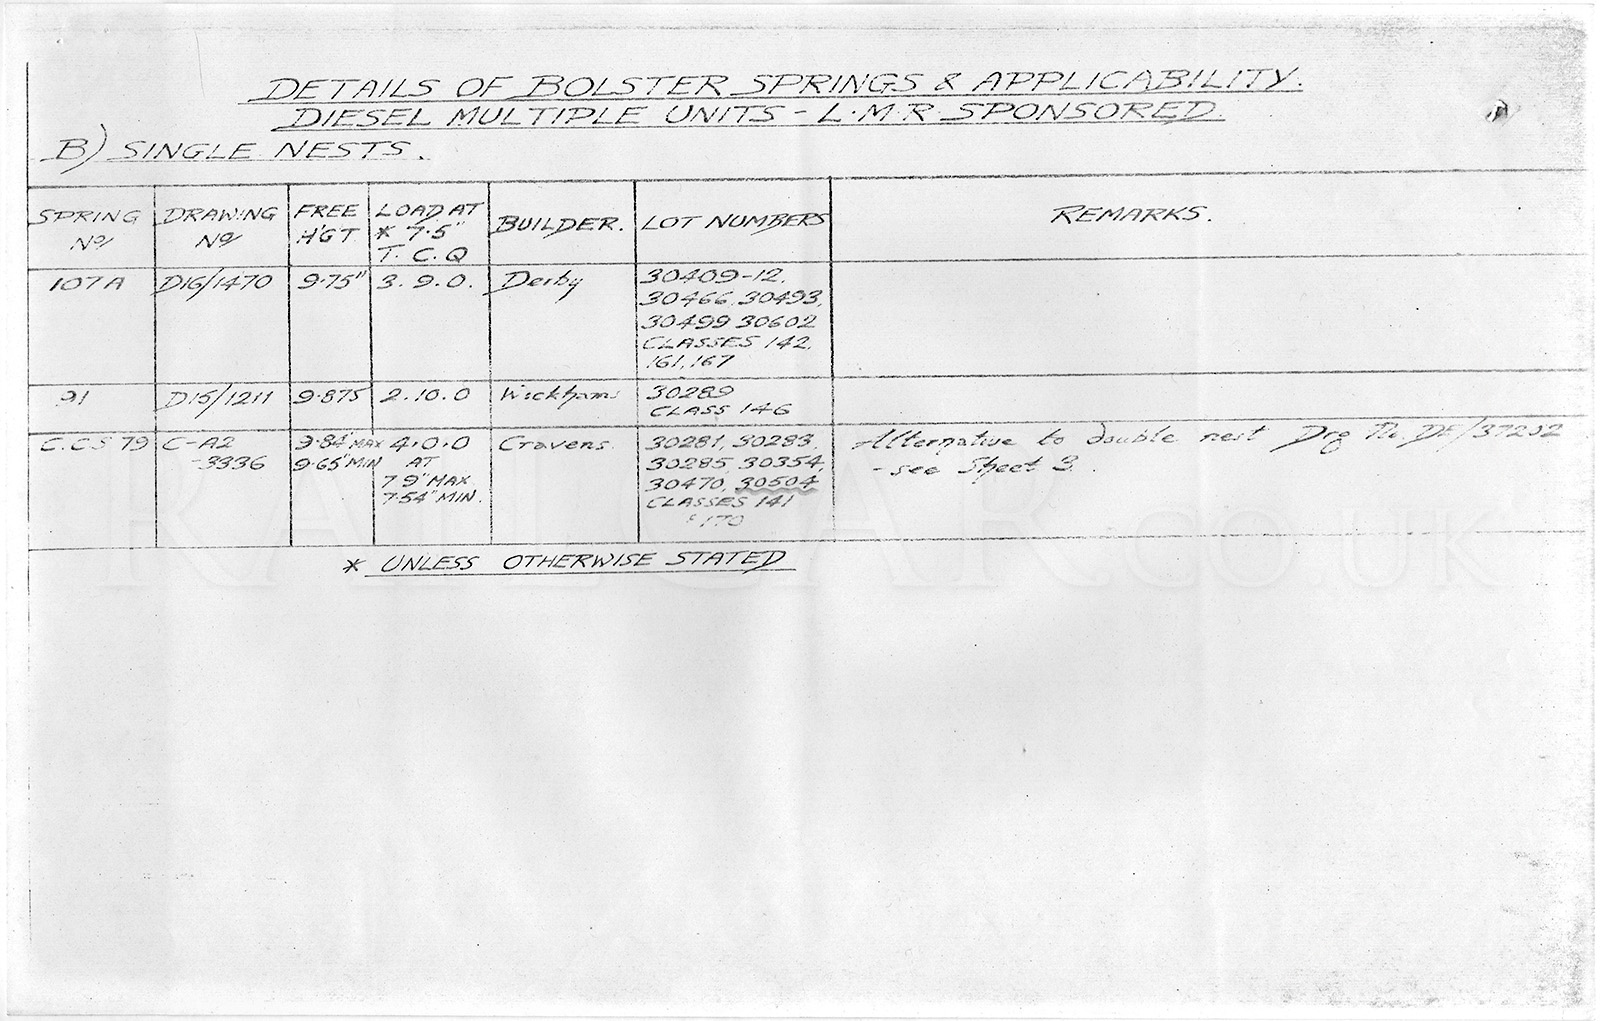 DETAILS OF BOLSTER SPRINGS & APPLICABILITY.
DIESEL MULTIPLE UNITS - L.M.R. SPONSORED.
B) SINGLE NESTS.
SPRING No/ DRAWING No/ FREE H'GT. LOAD AT * 7.5" T. C. Q BUILDER. LOT NUMBERS REMARKS.
107A D16/1470 9.75" 3. 9. 0. Derby 30409-12,
30466, 30493,
30499 30602
CLASSES 142,
161, 167
91 D15/1211 9.875 2. 10. 0 Wickhams 30289
CLASS 146
C.C.S 79 C-A2 9.84" MAX 4. 0. 0 Cravens. 30281, 30283, Alternative to double nest Drg No. DE/37202
-3336 9.65" MIN AT 30285, 30354, - see Sheet 3.
7.9" MAX 30470, 30504
7.54" MIN. CLASSES 141
& 170
* UNLESS OTHERWISE STATED
RAILCAR.CO.UK